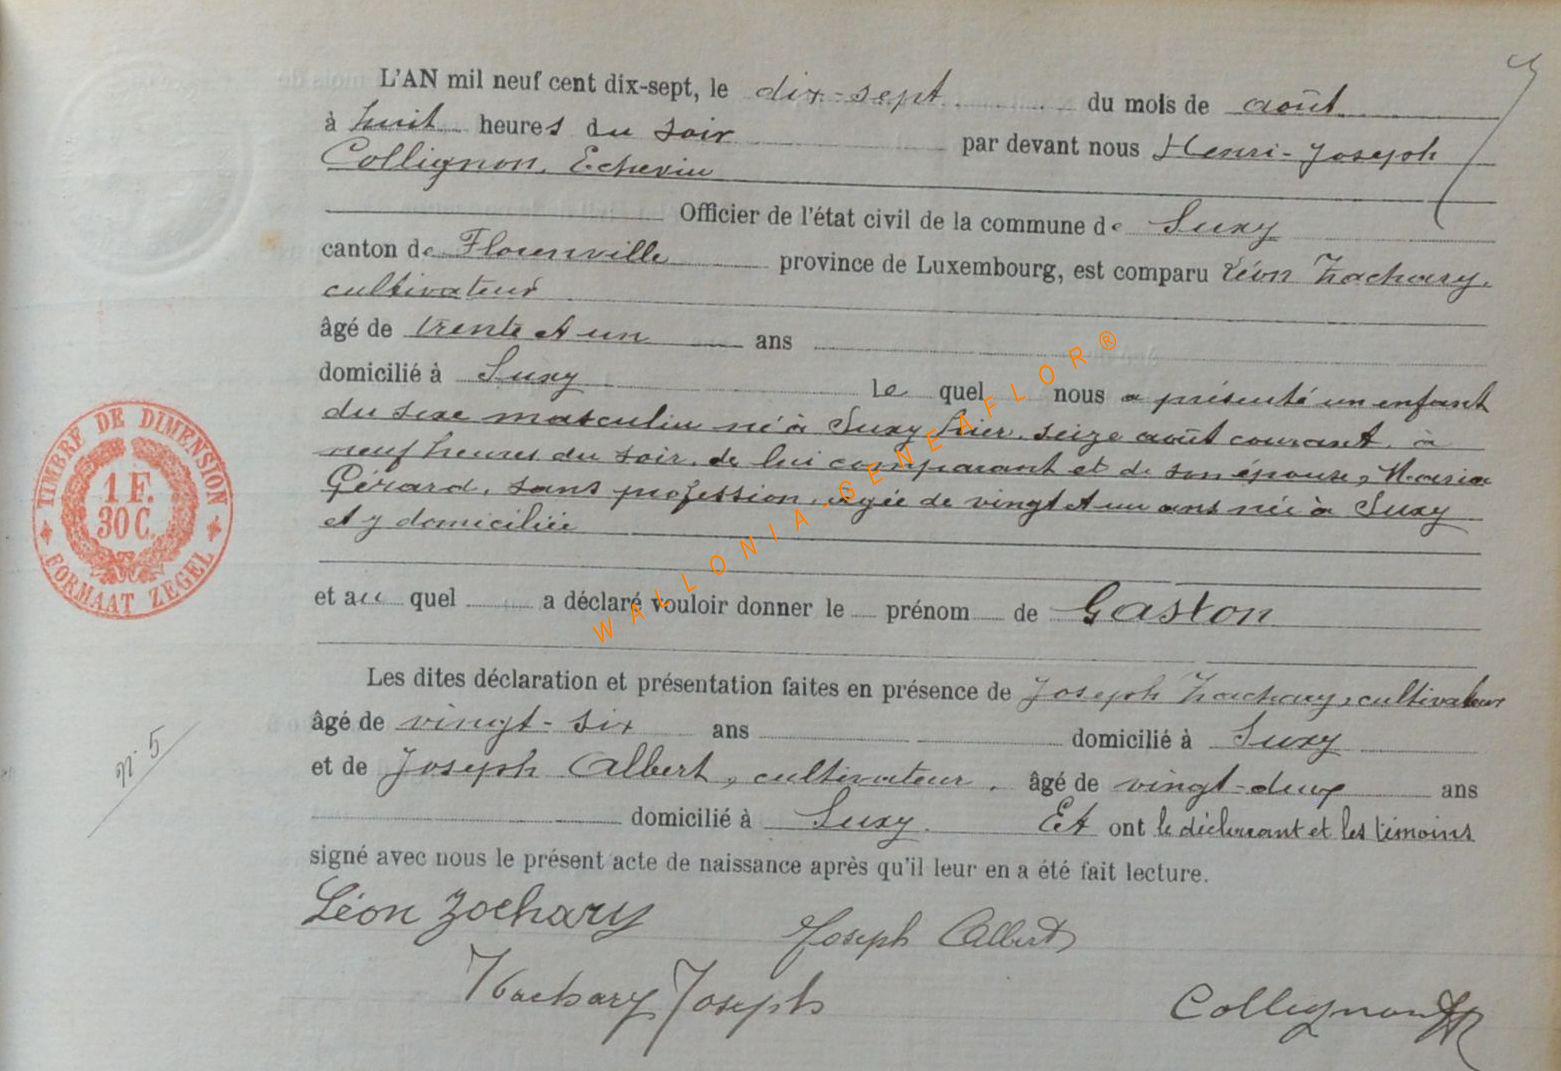 L'AN mil neuf cent dix-sept, le dix-sept du mois de août
à huit heures du soir par devant nous Henri-Joseph
Collignon, Echevin
Officier de l'état civil de la commune de Suxy
canton de Florenville province de Luxembourg, est comparu Léon Zachary,
cultivateur
âgé de trente et un ans
domicilié à Suxy Le quel nous a présenté un enfant
du sexe masculin né à Suxy hier, seize août courant, à
neuf heures du soir, de lui comparant et de son épouse, Maria
Gérard, sans profession, agée de vingt et un ans née à Suxy
et y domiciliée
et au quel a déclaré vouloir donner le prénom de Gaston
Les dites déclaration et présentation faites en présence de Joseph Zachary, cultivateur
âgé de vingt-six ans domicilié à Suxy
et de Joseph Albert, cultivateur, âgé de vingt-deux ans
domicilié à Suxy. Et ont le déclarant et les témoins
signé avec nous le présent acte de naissance après qu'il leur en a été fait lecture.
Léon Zachary
Joseph Albert
Zachary Joseph
Collignon HJ
n° 5
TIMBRE DE DIMENSION
1 F.
30 C.
FORMAAT ZEGEL
WALLONIA.GENEAFLOR®